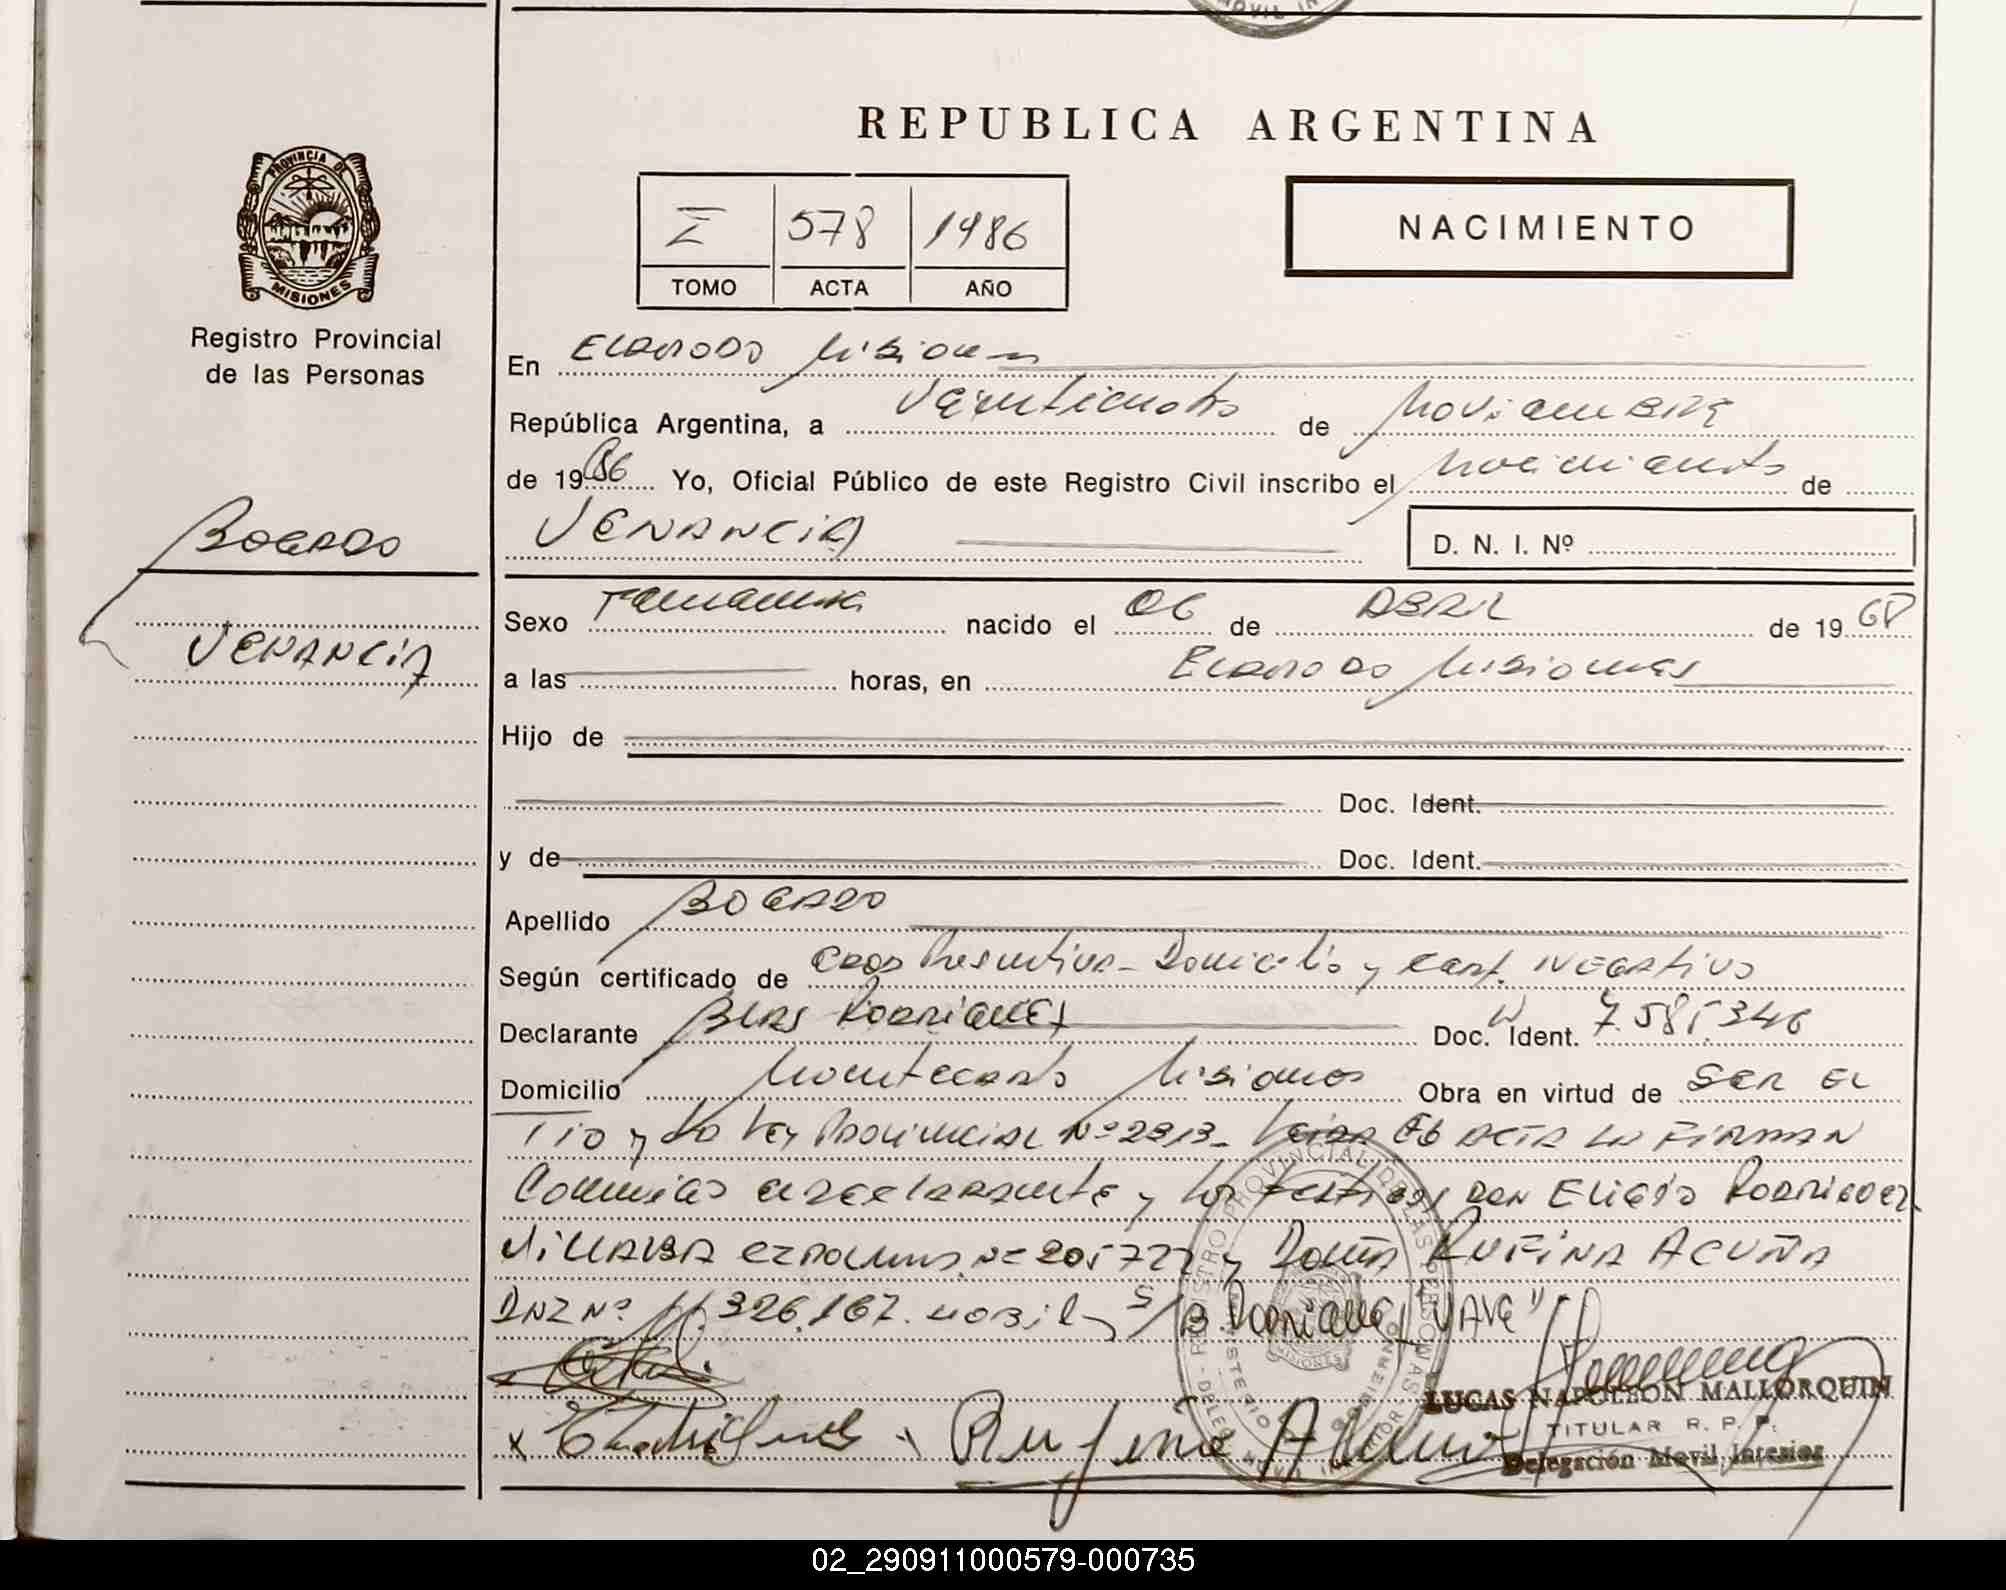 MOVIL IN
REPUBLICA ARGENTINA
PROVINCIA DE
MISIONES
Registro Provincial
de las Personas
I 578 1986
TOMO ACTA AÑO
NACIMIENTO
En Eldorado Misiones
República Argentina, a Veinticuatro de Noviembre
de 1986 Yo, Oficial Público de este Registro Civil inscribo el Nacimiento de
VENANCIA D. N. I. Nº
BOGADO
VENANCIA
Sexo Femenina nacido el 06 de ABRIL de 1968
a las horas, en Eldorado Misiones
Hijo de
Doc. Ident.
y de Doc. Ident.
Apellido BOGADO
Según certificado de Edad Presuntiva - Domicilio y Cert. NEGATIVO
Declarante BLAS RODRIGUEZ Doc. Ident. 7.585346
Domicilio Montecarlo Misiones Obra en virtud de SER EL
TIO y La Ley Provincial Nº 2313- Leida EL ACTA LA FIRMAN
Conmigo el declarante y los testigos DON Eligio RODRIGUEZ
VILLALBA Nº 205722 y DOÑA RUFINA ACUÑA
DNI Nº 11.326.167. S/B. RODRIGUEZ VALE"
Rufina Acuña
LUCAS NAPOLEON MALLORQUIN
TITULAR R. P. P.
Delegación Movil Interior
REGISTRO PROVINCIAL DE LAS PERSONAS
MISIONES
02_290911000579-000735